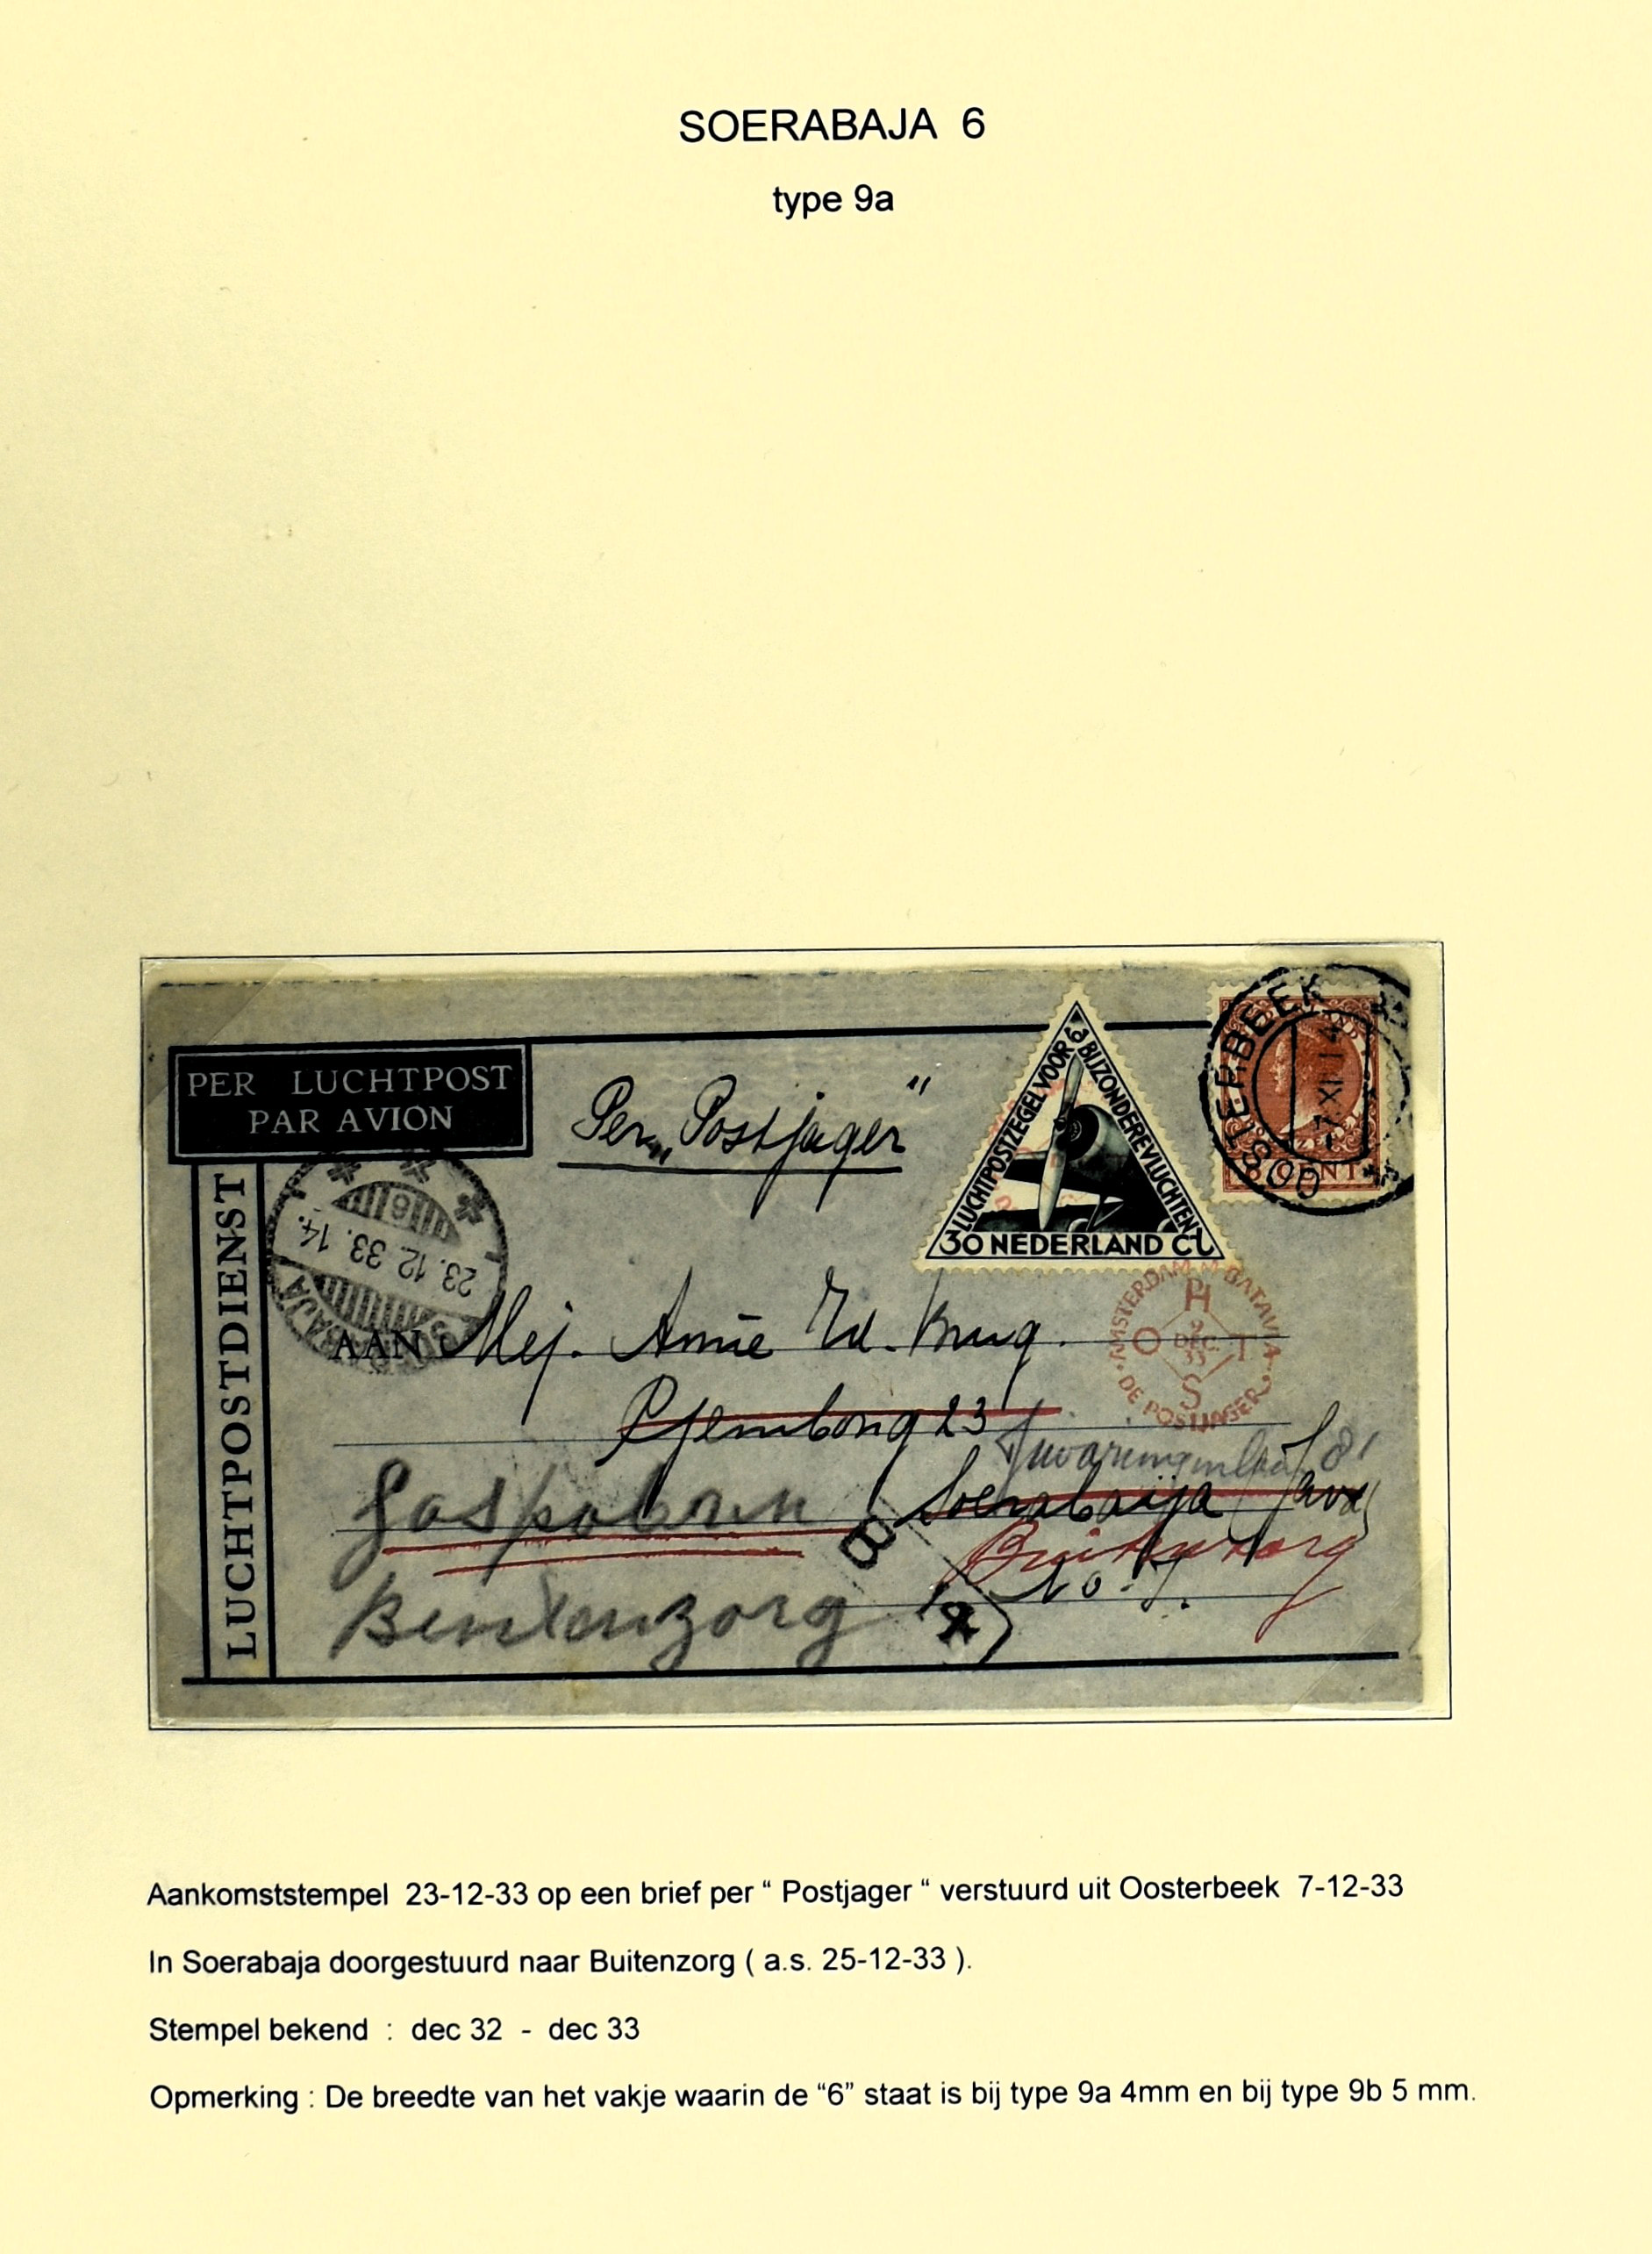 SOERABAJA 6
type 9a
PER LUCHTPOST
PAR AVION
LUCHTPOSTDIENST
Per „Postjager"
LUCHTPOSTZEGEL VOOR BIJZONDERE VLUCHTEN
30 NEDERLAND CT
OOSTERBEEK
CENT
23.12.33.14.
6
AMSTERDAM BATAVIA
PH
O 9 DEC. 33 T
S
DE POSTJAGER
AAN Mej. Annie
23
Soerabaija (Java)
Buitenzorg
No. I.
Buitenzorg
B
Aankomststempel 23-12-33 op een brief per “ Postjager “ verstuurd uit Oosterbeek 7-12-33
In Soerabaja doorgestuurd naar Buitenzorg ( a.s. 25-12-33 ).
Stempel bekend : dec 32 - dec 33
Opmerking : De breedte van het vakje waarin de “6” staat is bij type 9a 4mm en bij type 9b 5 mm.